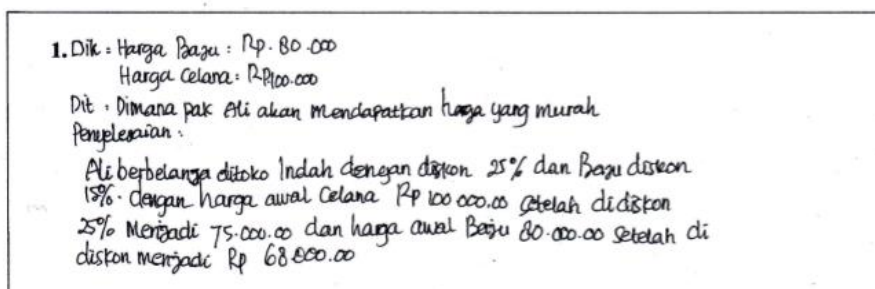 1. Dik : Harga Baju : Rp. 80.000
Harga Celana : Rp100.000
Dit : Dimana pak Ali akan mendapatkan harga yang murah
Penyelesaian :
Ali berbelanja ditoko Indah dengan diskon 25% dan Baju diskon
15%. dengan harga awal Celana Rp 100 000.00 setelah didiskon
25% Menjadi 75.000.00 dan harga awal Baju 80.000.00 setelah di
diskon menjadi Rp 68.000.00